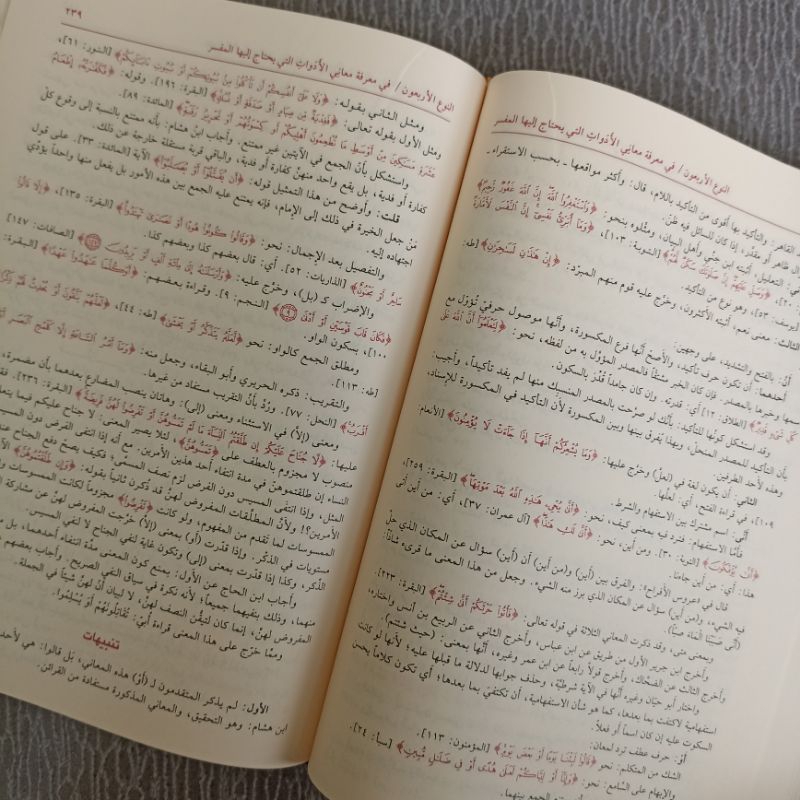 النوع الأربعون/ في معرفة معاني الأدوات التي يحتاج إليها المفسر
القاهر: والتأكيد بها أقوى من التأكيد باللام، قال: وأكثر مواقعها ـ بحسب الاستقراء ـ
ل ظاهر أو مقدر، إذا كان للسائل فيه ظن.
ي: التعليل، أثبته ابن جني وأهل البيان، ومثلوه بنحو: ﴿وَاسْتَغْفِرُوا اللَّهَ إِنَّ اللَّهَ غَفُورٌ رَحِيمٌ﴾
٢٠]، ﴿وَصَلِّ عَلَيْهِمْ إِنَّ صَلَاتَكَ سَكَنٌ لَهُمْ﴾ [التوبة: ١٠٣]، ﴿وَمَا أُبَرِّئُ نَفْسِي إِنَّ النَّفْسَ لَأَمَّارَةٌ
[يوسف: ٥٣]، وهو نوع من التأكيد.
الثالث: معنى نعم، أثبته الأكثرون، وخرج عليه قوم منهم المبرد: ﴿إِنْ هَذَانِ لَسَاحِرَانِ﴾ [طه:
أَنَّ: بالفتح والتشديد، على وجهين:
أحدهما: أن تكون حرف تأكيد، والأصح أنها فرع المكسورة، وأنها موصول حرفي تُؤول مع
سمها وخبرها بالمصدر. فإن كان الخبر مشتقاً فالمصدر المؤول به من لفظه، نحو: ﴿لِتَعْلَمُوا أَنَّ اللَّهَ عَلَى
كُلِّ شَيْءٍ قَدِيرٌ﴾ [الطلاق: ١٢] أي: قدرته. وإن كان جامداً قُدّر بالكون.
وقد استشكل كونها للتأكيد: بأنك لو صرحت بالمصدر المنسبك منها لم يفد تأكيداً، وأجيب:
بأن التأكيد للمصدر المنحل، وبهذا يفرق بينها وبين المكسورة لأن التأكيد في المكسورة للإسناد،
وهذه لأحد الطرفين.
الثاني: أن يكون لغة في (لعل) وخرج عليها: ﴿وَمَا يُشْعِرُكُمْ أَنَّهَا إِذَا جَاءَتْ لَا يُؤْمِنُونَ﴾ [الأنعام:
١٠٩]، في قراءة الفتح، أي: لعلها.
أنّى: اسم مشترك بين الاستفهام والشرط.
فأما الاستفهام: فترد فيه بمعنى كيف، نحو: ﴿أَنَّى يُحْيِي هَذِهِ اللَّهُ بَعْدَ مَوْتِهَا﴾ [البقرة: ٢٥٩]،
﴿أَنَّى يُؤْفَكُونَ﴾ [التوبة: ٣٠]. ومن أين، نحو: ﴿أَنَّى لَكِ هَذَا﴾ [آل عمران: ٣٧]، أي: من أين أتى
هذا؟ أي: من أين جاءنا.
قال في «عروس الأفراح»: والفرق بين (أين) و(من أين) أن (أين) سؤال عن المكان الذي حل
فيه الشيء، و(من أين) سؤال عن المكان الذي برز منه الشيء. وجعل من هذا المعنى ما قرىء شاذاً:
(أنّى صببنا الماء صبّاً).
وبمعنى متى، وقد ذكرت المعاني الثلاثة في قوله تعالى: ﴿فَأْتُوا حَرْثَكُمْ أَنَّى شِئْتُمْ﴾ [البقرة: ٢٢٣].
وأخرج ابن جرير الأول من طريق عن ابن عباس، وأخرج الثاني عن الربيع بن أنس واختاره،
وأخرج الثالث عن الضحاك، وأخرج قولاً رابعاً عن ابن عمر وغيره، أنها بمعنى: (حيث شئتم).
واختار أبو حيان وغيره أنها في الآية شرطية، وحذف جوابها لدلالة ما قبلها عليه؛ لأنها لو كانت
استفهامية لاكتفت بما بعدها، كما هو شأن الاستفهامية، أن تكتفي بما بعدها؛ أي تكون كلاماً يحسن
السكوت عليه إن كان اسماً أو فعلاً.
أو: حرف عطف ترد لمعان:
الشك من المتكلم: نحو ﴿قَالُوا لَبِثْنَا يَوْمًا أَوْ بَعْضَ يَوْمٍ﴾ [المؤمنون: ١١٣].
والإبهام على السامع: نحو: ﴿وَإِنَّا أَوْ إِيَّاكُمْ لَعَلَى هُدًى أَوْ فِي ضَلَالٍ مُبِينٍ﴾ [سبأ: ٢٤].
الجمع بينهما.
النوع الأربعون/ في معرفة معاني الأدوات التي يحتاج إليها المفسر
٢٣٩
ومثل الثاني بقوله: ﴿وَلَا عَلَى أَنْفُسِكُمْ أَنْ تَأْكُلُوا مِنْ بُيُوتِكُمْ أَوْ بُيُوتِ آبَائِكُمْ﴾ [النور: ٦١]،
ومثل الأول بقوله تعالى: ﴿فَفِدْيَةٌ مِنْ صِيَامٍ أَوْ صَدَقَةٍ أَوْ نُسُكٍ﴾ [البقرة: ١٩٦]. وقوله: ﴿فَكَفَّارَتُهُ إِطْعَامُ
عَشَرَةِ مَسَاكِينَ مِنْ أَوْسَطِ مَا تُطْعِمُونَ أَهْلِيكُمْ أَوْ كِسْوَتُهُمْ أَوْ تَحْرِيرُ رَقَبَةٍ﴾ [المائدة: ٨٩].
واستشكل بأن الجمع في الآيتين غير ممتنع. وأجاب ابن هشام: بأنه ممتنع بالنسبة إلى وقوع كل
كفارة أو فدية، بل يقع واحد منهن كفارة أو فدية، والباقي قربة مستقلة خارجة عن ذلك.
قلت: وأوضح من هذا التمثيل قوله: ﴿أَنْ يُقَتَّلُوا أَوْ يُصَلَّبُوا﴾ الآية [المائدة: ٣٣]. على قول
من جعل الخيرة في ذلك إلى الإمام، فإنه يمتنع عليه الجمع بين هذه الأمور بل يفعل منها واحداً يؤدي
اجتهاده إليه.
والتفصيل بعد الإجمال: نحو: ﴿وَقَالُوا كُونُوا هُودًا أَوْ نَصَارَى تَهْتَدُوا﴾ [البقرة: ١٣٥]، ﴿إِلَّا قَالُوا
سَاحِرٌ أَوْ مَجْنُونٌ﴾ [الذاريات: ٥٢]. أي: قال بعضهم كذا وبعضهم كذا.
والإضراب كـ (بل)، وخرج عليه: ﴿وَأَرْسَلْنَاهُ إِلَى مِائَةِ أَلْفٍ أَوْ يَزِيدُونَ﴾ [الصافات: ١٤٧
﴿فَكَانَ قَابَ قَوْسَيْنِ أَوْ أَدْنَى﴾ [النجم: ٩]. وقراءة بعضهم: ﴿أَوْ كُلَّمَا عَاهَدُوا عَهْدًا﴾ [البقرة:
١٠٠]، بسكون الواو.
ومطلق الجمع كالواو: نحو ﴿لَعَلَّهُ يَتَذَكَّرُ أَوْ يَخْشَى﴾ [طه: ٤٤]، ﴿لَعَلَّهُمْ يَتَّقُونَ أَوْ يُحْدِثُ لَهُمْ ذِكْرًا
[طه: ١١٣].
والتقريب: ذكره الحريري وأبو البقاء، وجعل منه: ﴿وَمَا أَمْرُ السَّاعَةِ إِلَّا كَلَمْحِ الْبَصَرِ أَوْ
أَقْرَبُ﴾ [النحل: ٧٧]. ورُدّ بأن التقريب مستفاد من غيرها.
ومعنى (إلا) في الاستثناء، ومعنى (إلى): وهاتان ينصب المضارع بعدهما بأن مضمرة،
عليها: ﴿لَا جُنَاحَ عَلَيْكُمْ إِنْ طَلَّقْتُمُ النِّسَاءَ مَا لَمْ تَمَسُّوهُنَّ أَوْ تَفْرِضُوا لَهُنَّ فَرِيضَةً﴾ [البقرة: ٢٣٦].
منصوب لا مجزوم بالعطف على ﴿تَمَسُّوهُنَّ﴾، لئلا يصير المعنى: لا جناح عليكم فيما يتعلق
النساء إن طلقتموهن في مدة انتفاء أحد هذين الأمرين. مع أنه إذا انتفى الفرض دون المسيس
المثل، وإذا انتفى المسيس دون الفرض لزم نصف المسمى، فكيف يصح دفع الجناح عند
الأمرين؟! ولأن المطلقات المفروض لهن قد ذكرن ثانياً بقوله: ﴿وَإِنْ طَلَّقْتُمُوهُنَّ﴾
الممسوسات لما تقدم من المفهوم، ولو كانت ﴿تَفْرِضُوا﴾ مجزوماً لكانت الممسوسات
مستويات في الذكر. وإذا قدرت (أو) بمعنى (إلا) خرجت المفروض لهن عن مشاركة
الذكر، وكذا إذا قدرت بمعنى (إلى) وتكون غاية لنفي الجناح لا لنفي المسيس.
وأجاب ابن الحاجب عن الأول: يمنع كون المعنى مدة انتفاء أحدهما، بل
منهما، وذلك بنفيهما جميعاً؛ لأنه نكرة في سياق النفي الصريح. وأجاب بعضهم
المفروض لهن، إنما كان لتيقن النصف لهن، لا لبيان أن لهن شيئاً في الجملة.
ومما خرج على هذا المعنى قراءة أبيّ: تُقَاتِلُونَهُمْ أَوْ يُسْلِمُوا.
تنبيهات
الأول: لم يذكر المتقدمون لـ (أو) هذه المعاني، بل قالوا: هي لأحد
ابن هشام: وهو التحقيق، والمعاني المذكورة مستفادة من القرائن.